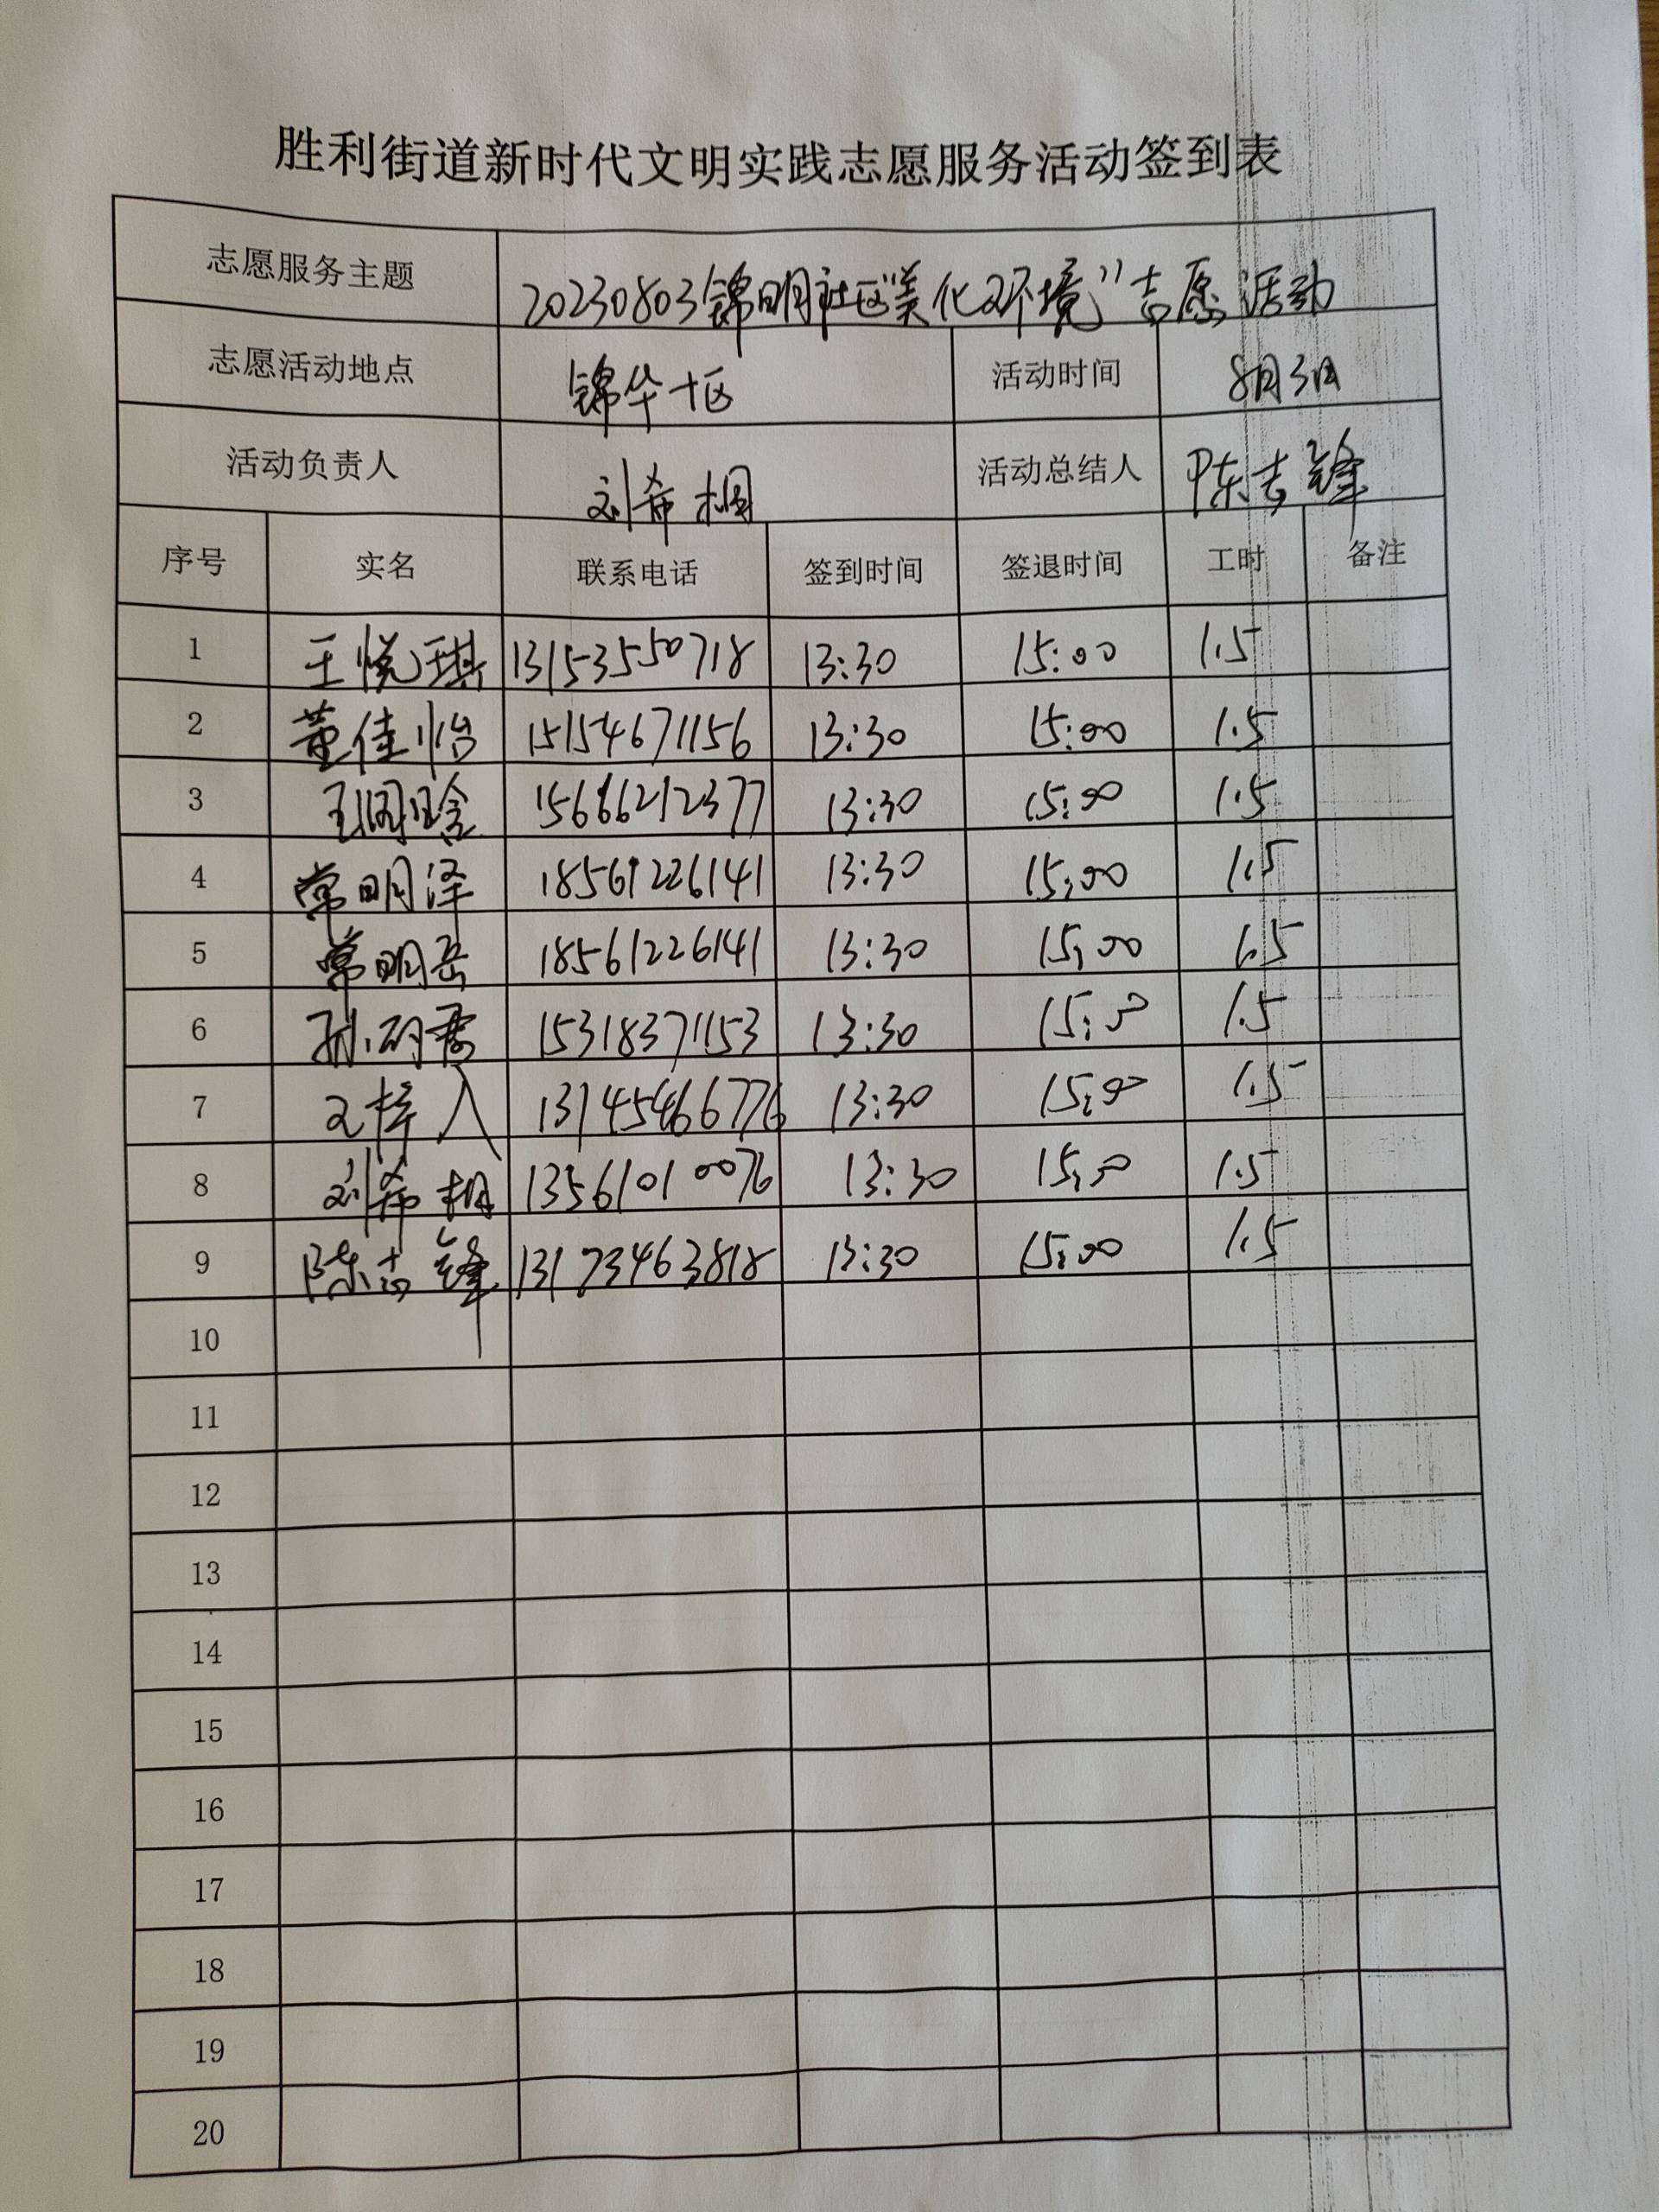 胜利街道新时代文明实践志愿服务活动签到表
志愿服务主题 20230803锦明社区“美化环境”志愿活动
志愿活动地点 锦华十区 活动时间 8月3日
活动负责人 刘希桐 活动总结人 陈志锋
序号 实名 联系电话 签到时间 签退时间 工时 备注
1 王悦琪 13153550718 13:30 15:00 1.5
2 董佳怡 15154671156 13:30 15:00 1.5
3 15666212377 13:30 15:00 1.5
4 常明泽 18561226141 13:30 15:00 1.5
5 常明岳 18561226141 13:30 15:00 1.5
6 15318371153 13:30 15:00 1.5
7 13:30 15:00 1.5
8 刘希桐 13561010076 13:30 15:00 1.5
9 陈志锋 13173463818 13:30 15:00 1.5
10
11
12
13
14
15
16
17
18
19
20